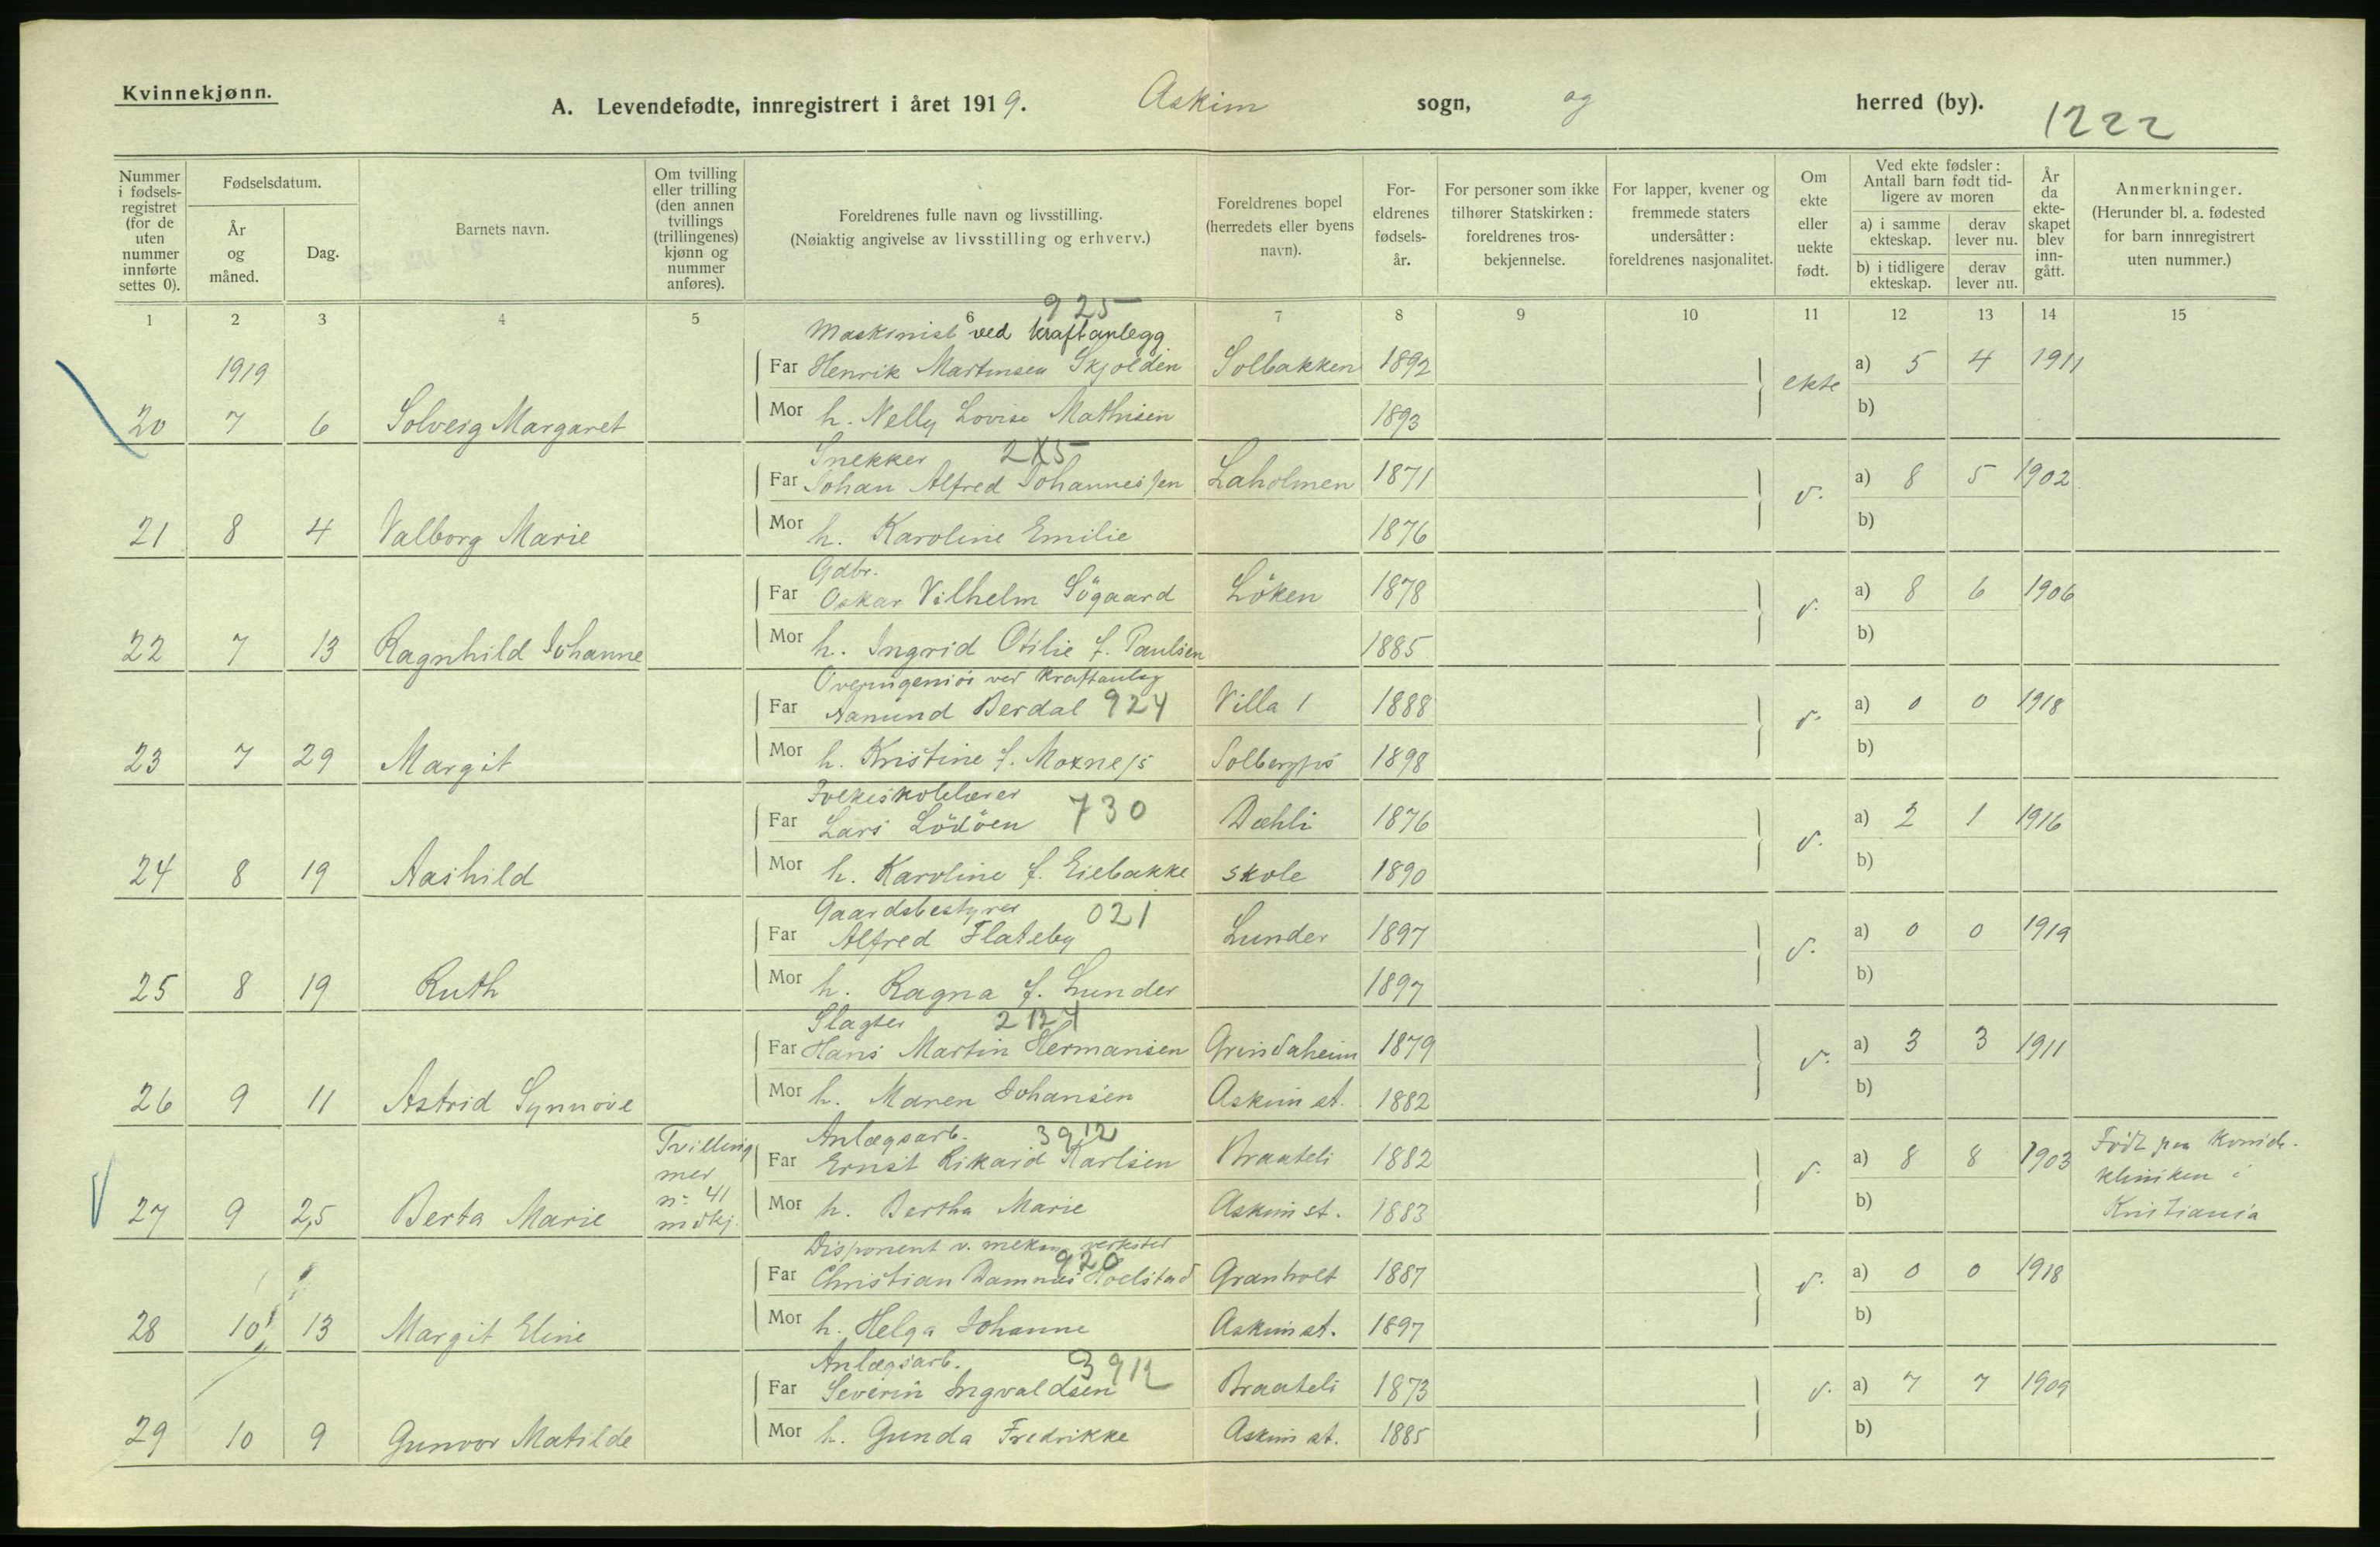 Kvinnekjønn.
A. Levendefødte, innregistrert i året 1919. Askim sogn, og herred (by).
1222
Nummer i fødsels-registret (for de uten nummer innførte settes 0).
Fødselsdatum.
År og måned.
Dag.
Barnets navn.
Om tvilling eller trilling (den annen tvillings (trillingenes) kjønn og nummer anføres).
Foreldrenes fulle navn og livsstilling. (Nøiaktig angivelse av livsstilling og erhverv.)
Foreldrenes bopel (herredets eller byens navn).
For-eldrenes fødsels-år.
For personer som ikke tilhører Statskirken: foreldrenes tros-bekjennelse.
For lapper, kvener og fremmede staters undersåtter: foreldrenes nasjonalitet.
Om ekte eller uekte født.
Ved ekte fødsler: Antall barn født tid-ligere av moren
a) i samme ekteskap.
derav lever nu.
b) i tidligere ekteskap.
derav lever nu.
År da ekte-skapet blev inn-gått.
Anmerkninger. (Herunder bl. a. fødested for barn innregistrert uten nummer.)
1 2 3 4 5 6 7 8 9 10 11 12 13 14 15
925
Maskinist ved kraftanlegg
1919 Far Henrik Martinsen Skjolden Solbakken 1892 ekte a) 5 4 1911
20 7 6 Solveig Margaret Mor h. Nelly Lovise Mathisen 1893 b)
Snekker 2X5
Far Johan Alfred Johannessen Laholmen 1871 a) 8 5 1902
21 8 4 Valborg Marie Mor h. Karoline Emilie 1876 b)
Gdbr.
Far Oskar Vilhelm Sögaard Löken 1878 a) 8 6 1906
22 7 13 Ragnhild Johanne Mor h. Ingrid Otilie f. Paulsen 1885 b)
Overingeniör ved Kraftanleg
Far Aamund Berdal 924 Villa 1 1888 a) 0 0 1918
23 7 29 Margit Mor h. Kristine f. Moxness Solbergfos 1898 b)
Folkeskolelærer 730
Far Lars Lödöen Dæhli 1876 a) 2 1 1916
24 8 19 Aashild Mor h. Karoline f. Eiebakke skole 1890 b)
Gaardsbestyrer 021
Far Alfred Flateby Lunder 1897 a) 0 0 1919
25 8 19 Ruth Mor h. Ragna f. Lunder 1897 b)
Slagter
Far Hans Martin Hermansen Grindaheim 1879 a) 3 3 1911
26 9 11 Astrid Synnöve Mor h. Maren Johansen Askim st. 1882 b)
Tvilling mer nr 41 mdkj.
Anlægsarb. 3912
Far Ernst Rikard Karlsen Braateli 1882 a) 8 8 1903 Födt paa Kvinde-
kliniken i
27 9 25 Berta Marie Mor h. Bertha Marie Askim st. 1883 b) Kristiania
Disponent v. mekan verksted
920
Far Christian Hoelstad Granholt 1887 a) 0 0 1918
28 10 13 Margit Eline Mor h. Helga Johanne Askim st. 1897 b)
Anlægsarb. 3912
Far Severin Ingvaldsen Braateli 1873 a) 7 7 1909
29 10 9 Gunvor Matilde Mor h. Gunda Fredrikke Askim st. 1885 b)